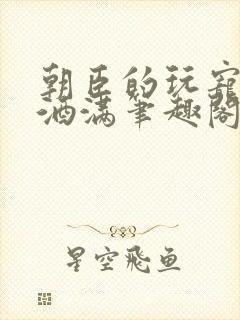 朝臣的玩宠
酒满笔趣阁
星空飛鱼